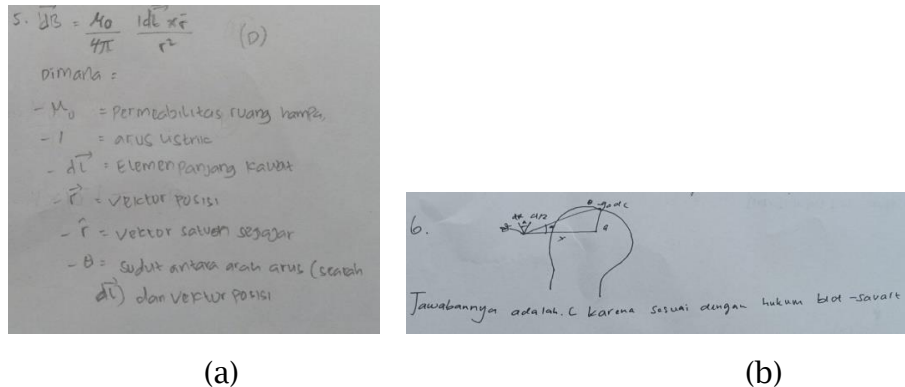 5. dB = μ0 / 4π Idl × r̂ / r² (D)
Dimana =
- μ0 = Permeabilitas ruang hampa,
- I = arus listric
- dl = Elemen panjang kawat
- r = vektor posisi
- r̂ = vektor satuan segajar
- θ = sudut antara arah arus (searah
dl) dan vektor posisi
6.
Jawabannya adalah. C karena sesuai dengan hukum biot-savart
(a)
(b)